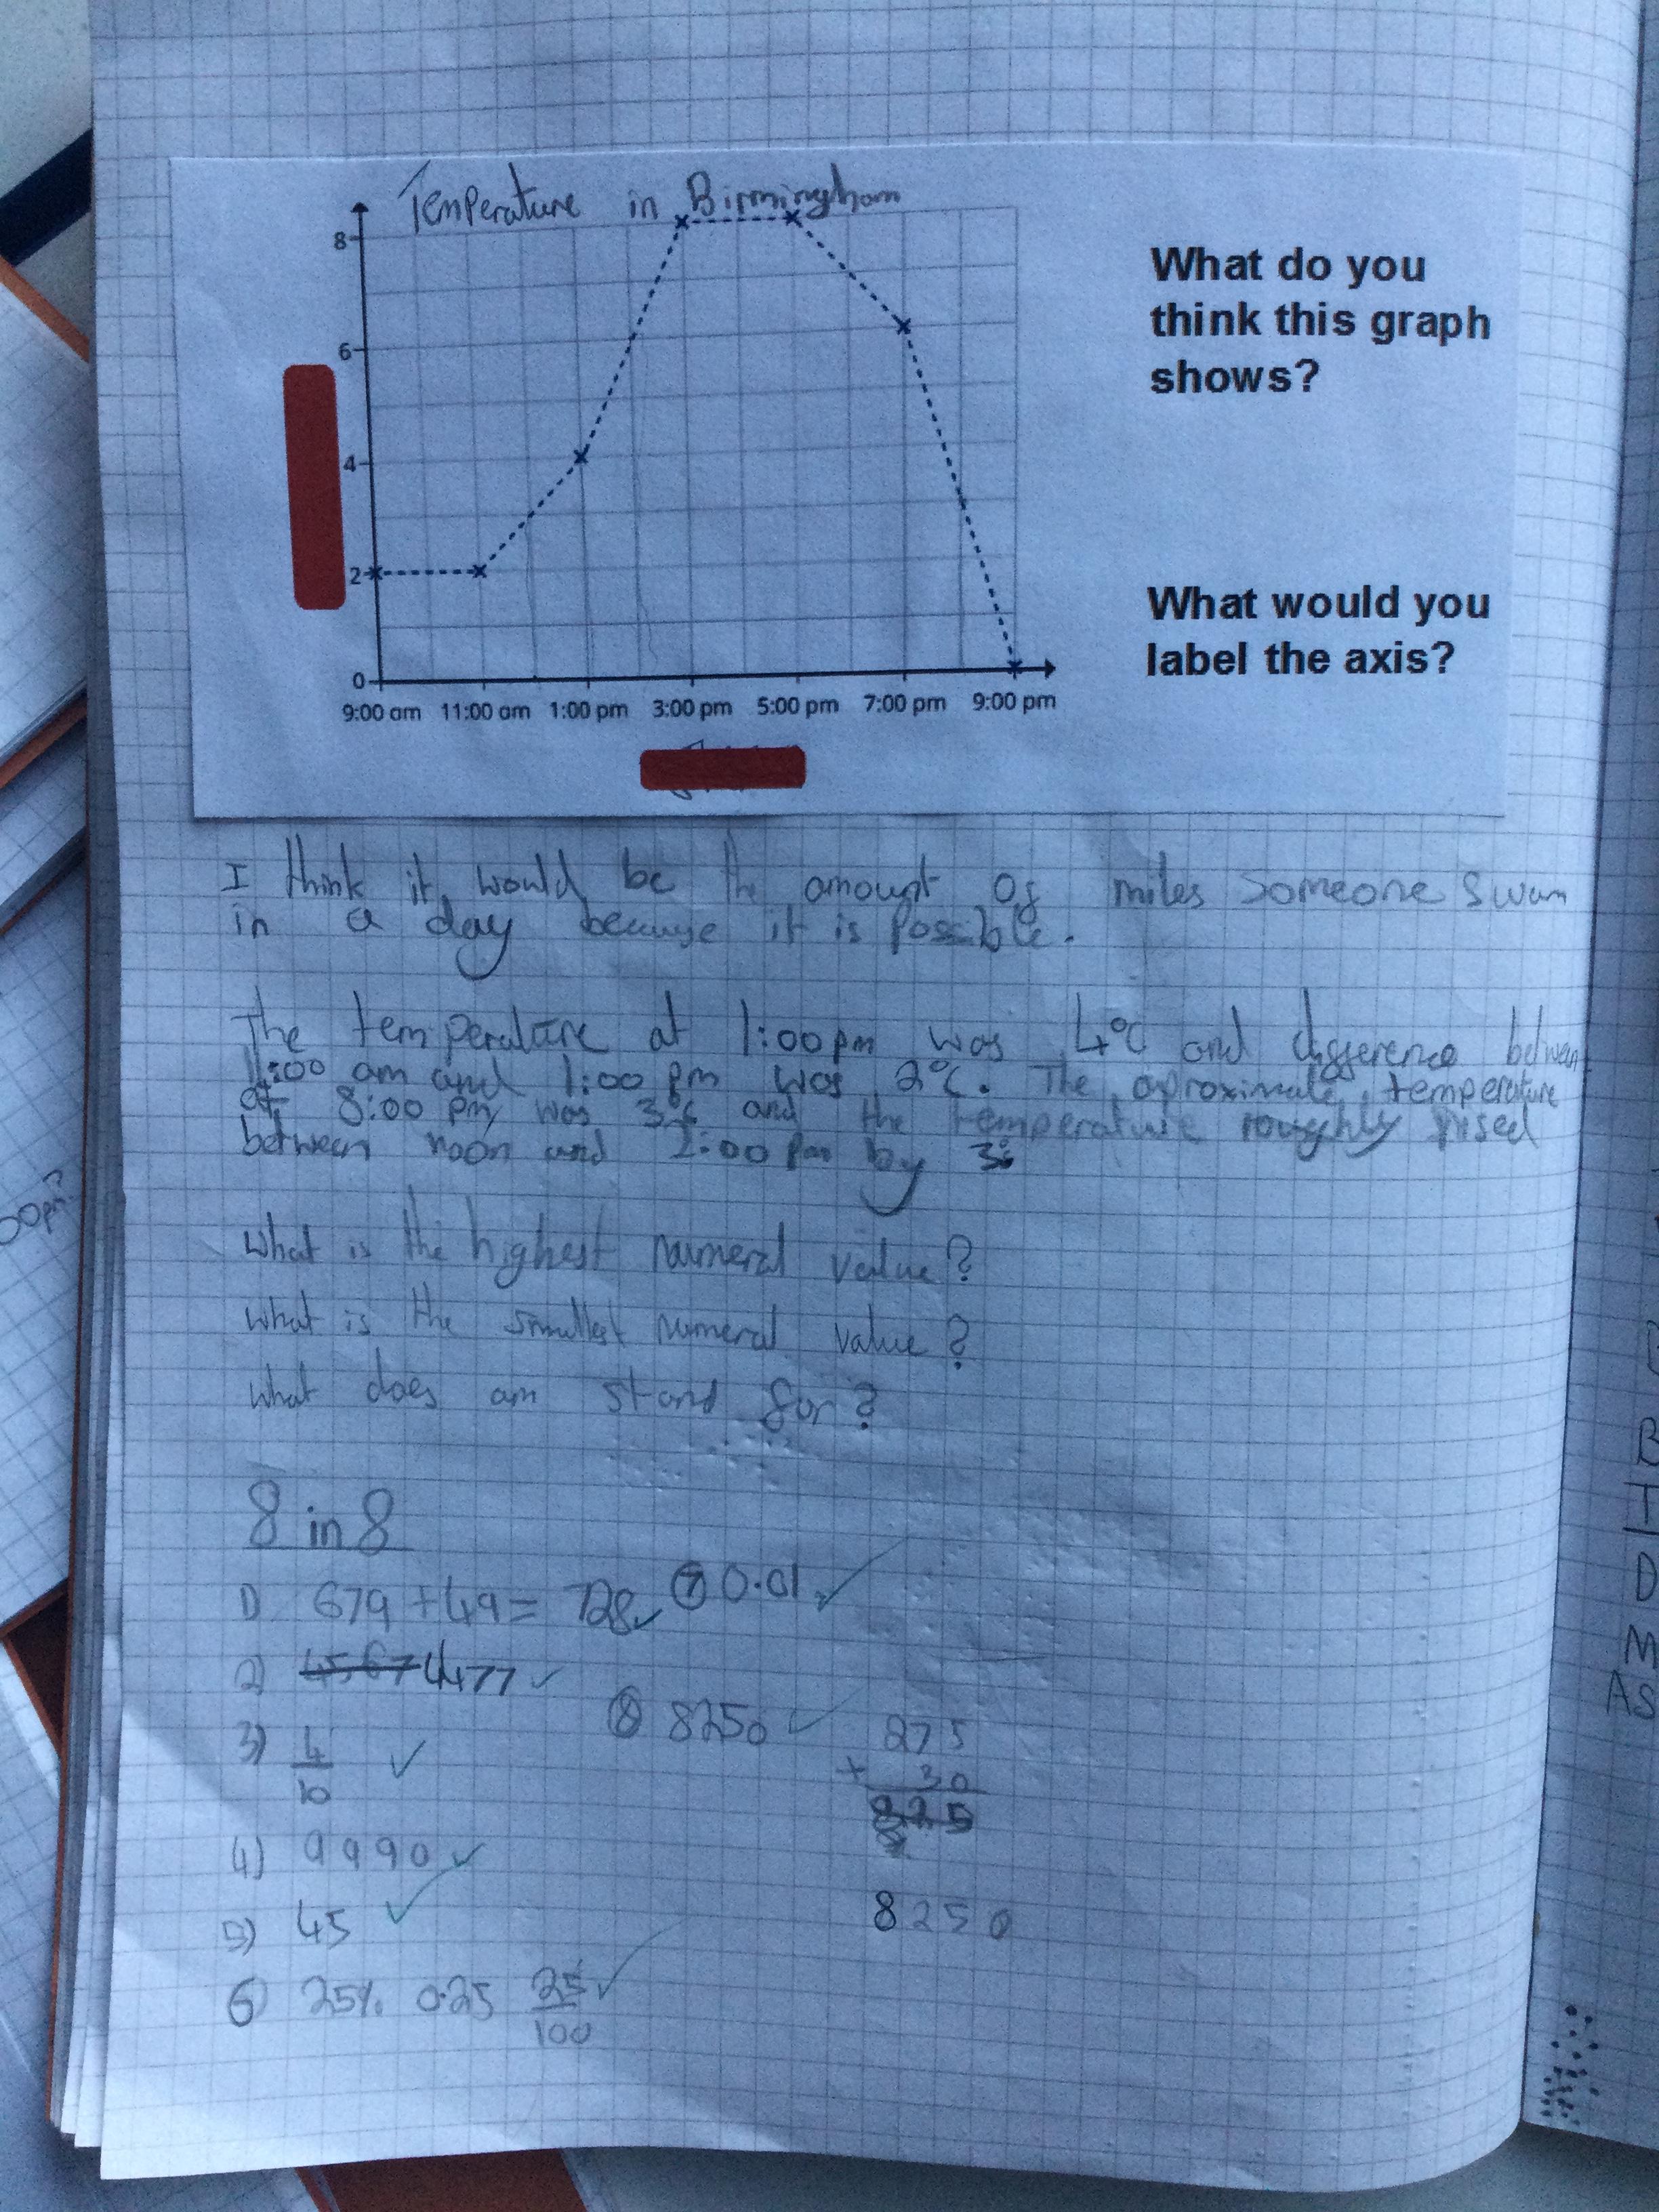 Temperature in Birmingham
8
6
4
2
0
9:00 am 11:00 am 1:00 pm 3:00 pm 5:00 pm 7:00 pm 9:00 pm
What do you
think this graph
shows?
What would you
label the axis?
I think it would be the amount of miles someone swam
in a day because it is possible.
The temperature at 1:00pm was 4°C and difference between
11:00 am and 1:00 pm was 2°C. The aproximate temperature
at 8:00 pm was 3°C and the temperature roughly rised
between noon and 2:00 pm by 3°
What is the highest numeral value?
What is the smallest numeral value?
What does am stand for?
8 in 8
1) 679 + 49 = 728
2) 4567 4477
3) 4
10
4) 9990
5) 45
6) 25% 0.25 25
100
7 0.01
8 8250
275
30
8250